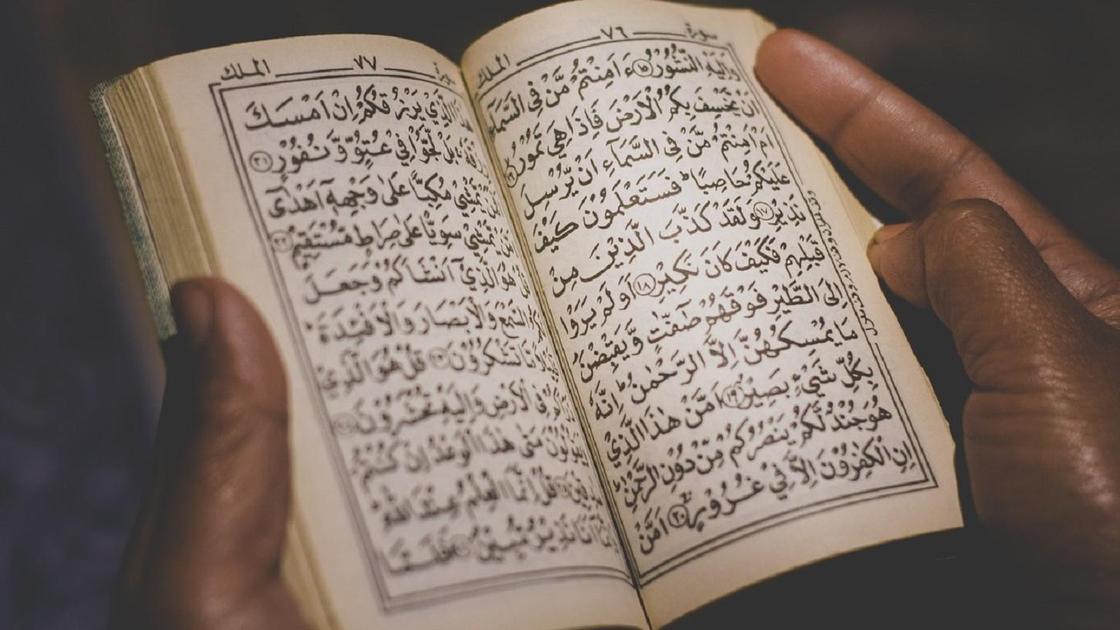 سورة ٧٦ الملك
وَاِلَيْهِ النُّشُوْرُ ١٥ ءَاَمِنْتُمْ مَّنْ فِي السَّمَآءِ
اَنْ يَّخْسِفَ بِكُمُ الْاَرْضَ فَاِذَا هِيَ تَمُوْرُ ١٦
اَمْ اَمِنْتُمْ مَّنْ فِي السَّمَآءِ اَنْ يُّرْسِلَ
عَلَيْكُمْ حَاصِبًا ؕ فَسَتَعْلَمُوْنَ كَيْفَ
نَذِيْرِ ١٧ وَلَقَدْ كَذَّبَ الَّذِيْنَ مِنْ
قَبْلِهِمْ فَكَيْفَ كَانَ نَكِيْرِ ١٨ اَوَلَمْ يَرَوْا
اِلَى الطَّيْرِ فَوْقَهُمْ صٰٓفّٰتٍ وَّيَقْبِضْنَ
مَا يُمْسِكُهُنَّ اِلَّا الرَّحْمٰنُ ؕ اِنَّهٗ
بِكُلِّ شَيْءٍ بَصِيْرٌ ١٩ اَمَّنْ هٰذَا الَّذِيْ
هُوَ جُنْدٌ لَّكُمْ يَنْصُرُكُمْ مِّنْ دُوْنِ الرَّحْمٰنِ ؕ
اِنِ الْكٰفِرُوْنَ اِلَّا فِيْ غُرُوْرٍ ٢٠ اَمَّنْ
٧٧ الملك
هٰذَا الَّذِيْ يَرْزُقُكُمْ اِنْ اَمْسَكَ
رِزْقَهٗ بَلْ لَّجُّوْا فِيْ عُتُوٍّ وَّنُفُوْرٍ ٢١
يَّمْشِيْ مُكِبًّا عَلٰى وَجْهِهٖٓ اَهْدٰٓى
يَّمْشِيْ سَوِيًّا عَلٰى صِرَاطٍ مُّسْتَقِيْمٍ ٢٢
هُوَ الَّذِيْٓ اَنْشَاَكُمْ وَجَعَلَ
السَّمْعَ وَالْاَبْصَارَ وَالْاَفْـِٕدَةَ ؕ
مَّا تَشْكُرُوْنَ ٢٣ قُلْ هُوَ الَّذِيْ
فِي الْاَرْضِ وَاِلَيْهِ تُحْشَرُوْنَ ٢٤
وَيَقُوْلُوْنَ مَتٰى هٰذَا الْوَعْدُ اِنْ كُنْتُمْ
صٰدِقِيْنَ ٢٥ قُلْ اِنَّمَا الْعِلْمُ عِنْدَ اللّٰهِ
اَنَا نَذِيْرٌ مُّبِيْنٌ ٢٦ فَلَمَّا